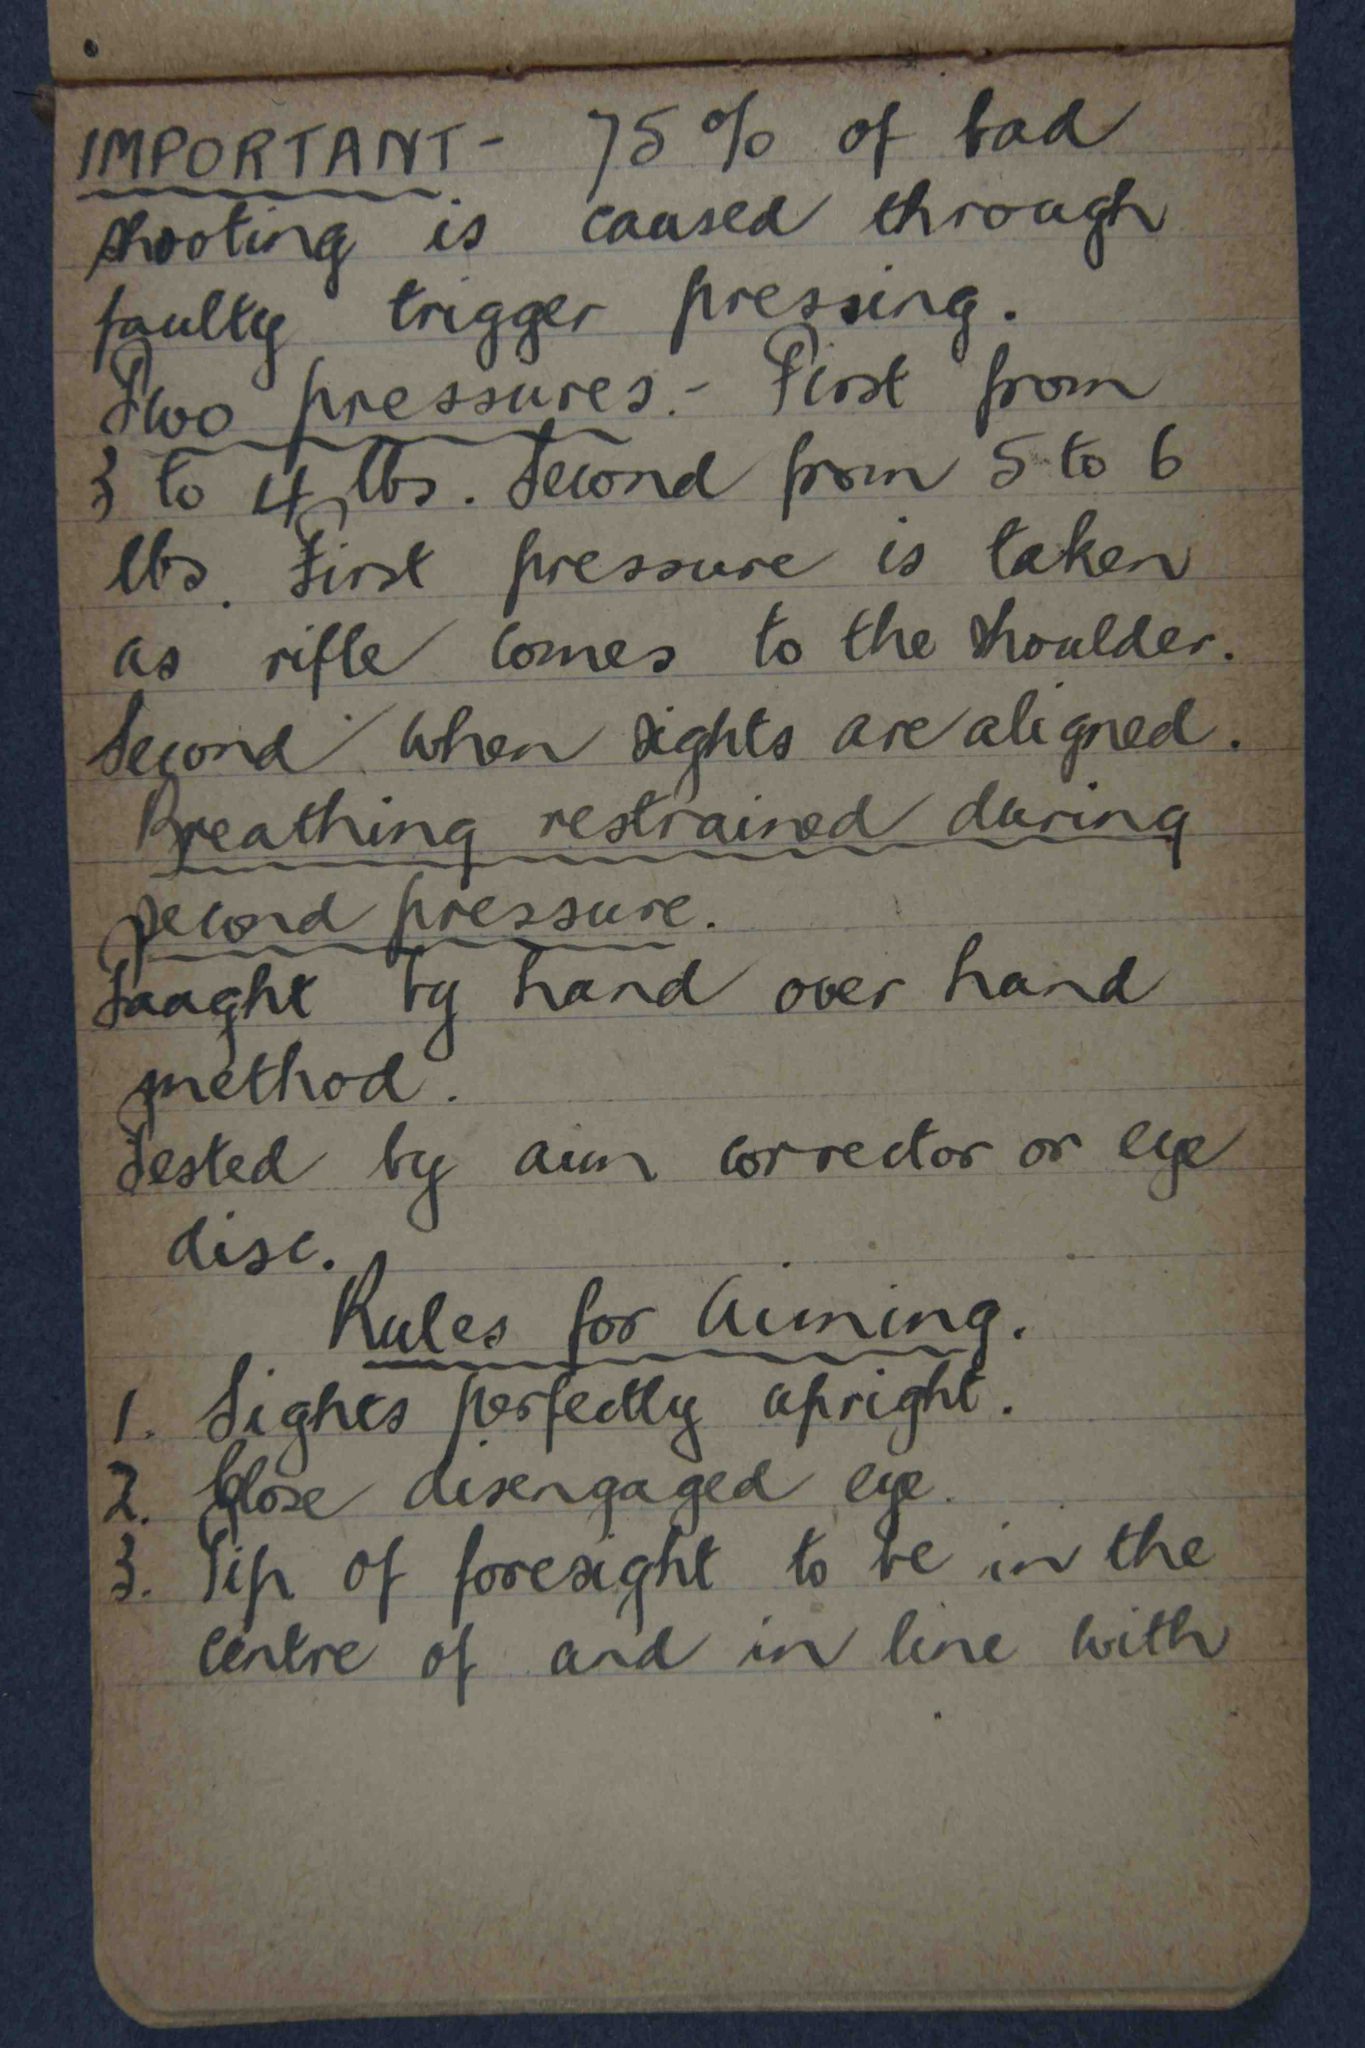 IMPORTANT - 75% of bad
shooting is caused through
faulty trigger pressing.
Two pressures. - First from
3 to 4 lbs. Second from 5 to 6
lbs. First pressure is taken
as rifle comes to the shoulder.
Second when sights are aligned.
Breathing restrained during
second pressure.
Taught by hand over hand
method.
Tested by aim corrector or eye
disc.
Rules for Aiming.
1. Sights perfectly upright.
2. Close disengaged eye.
3. Tip of foresight to be in the
centre of and in line with